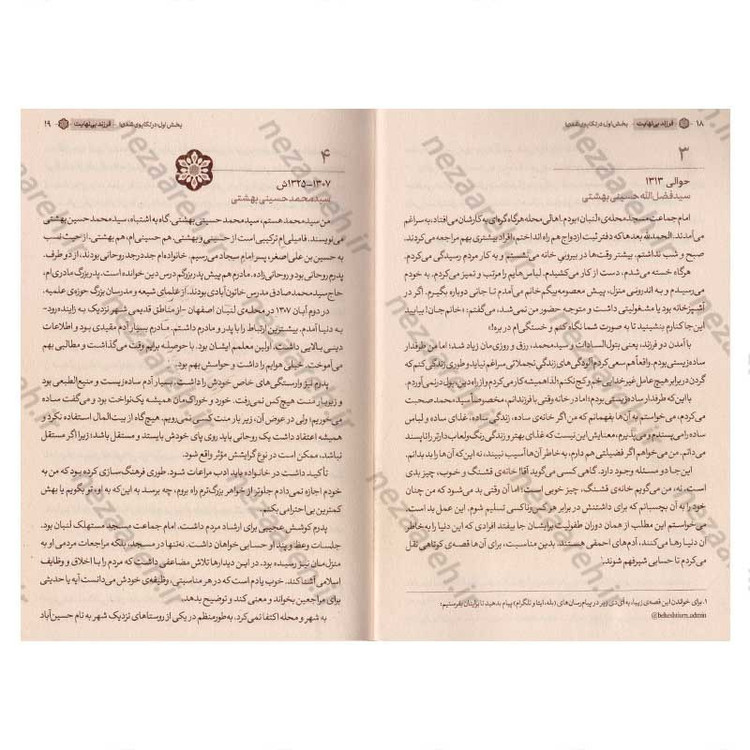 ۱۸ فرزند بی‌نهایت بخش اول: در تکاپوی شدن
۳
حوالی ۱۳۱۳
سیدفضل‌الله حسینی بهشتی
امام جماعت مسجد محله‌ی «لنبان» بودم. اهالی محله هرگاه گره‌ای به کارشان می‌افتاد، به سراغم
می‌آمدند. الحمدلله بعدها که دفتر ثبت ازدواج هم راه انداختم، افراد بیشتری بهم مراجعه می‌کردند.
صبح و شب نداشتم. بیشتر وقت‌ها در بیرونی خانه می‌نشستم و به کار مردم رسیدگی می‌کردم.
هرگاه خسته می‌شدم، دست از کار می‌کشیدم. لباس‌هایم را مرتب و تمیز می‌کردم، به خودم
می‌رسیدم و به اندرونی منزل، پیش معصومه‌بیگم خانم می‌آمدم تا جانی دوباره بگیرم. اگر در
آشپزخانه بود یا مشغولیتی داشت و متوجه حضور من نمی‌شد، می‌گفتم: «خانم‌جان! بیایید
این‌جا کنارم بنشینید تا به صورت شما نگاه کنم و خستگی‌ام در برود!»
با آمدن دو فرزند، یعنی بتول‌السادات و سیدمحمد، رزق و روزی‌مان زیاد شد؛ اما من طرفدار
ساده‌زیستی بودم. واقعاً هم سعی کردم آلودگی‌های زندگی تجملاتی سراغم نیاید و طوری زندگی کنم که
گردن در برابر هیچ عامل غیرخدایی خم و کج نکنم. لذا همیشه کار می‌کردم و از راه دین، پول درنمی‌آوردم.
با این‌که طرفدار ساده‌زیستی بودم؛ اما در خانه وقتی با فرزندانم، مخصوصاً سیدمحمد صحبت
می‌کردم، می‌خواستم به آن‌ها بفهمانم که من اگر خانه‌ی ساده، زندگی ساده، غذای ساده و لباس
ساده را می‌پسندم و می‌پذیرم، معنایش این نیست که غذای بهتر و زندگی رنگ و لعاب‌دارتر را ناپسند
می‌دانم. من می‌خواهم اگر فضیلتی هم دارم، به خاطر آن‌ها آسیب نبیند، نه این‌که آن‌ها را بد بدانم.
این‌جا دو مسئله وجود دارد. گاهی کسی می‌گوید آقا! خانه‌ی قشنگ و خوب، چیز بدی
است. نه، من می‌گویم خانه‌ی قشنگ، چیز خوبی است؛ اما آن وقتی بد می‌شود که من چنان
خود را به آن بچسبانم که برای داشتنش در برابر هر کس و ناکسی تسلیم شوم. این عمل بد است.
می‌خواستم این مطلب از همان دوران طفولیت برایشان جا بیفتد افرادی که این دنیا را به خاطر
آن دنیا رها می‌کنند، آدم‌های احمقی هستند. بدین مناسبت، برای آن‌ها قصه‌ی کوتاهی نقل
می‌کردم تا حسابی شیرفهم شوند.
۱. برای خواندن این قصه‌ی زیبا، به آی‌دی زیر در پیام‌رسان‌های (بله، ایتا و تلگرام) پیام بدهید تا برایتان بفرستیم؛
@beheshtism_admin
بخش اول: در تکاپوی شدن فرزند بی‌نهایت ۱۹
۴
۱۳۰۷-۱۳۲۵ش
سیدمحمد حسینی بهشتی
من سیدمحمد هستم، سیدمحمد حسینی بهشتی. گاه به اشتباه، سیدمحمدحسین بهشتی
می‌نویسند. فامیلی‌ام ترکیبی است از حسینی و بهشتی. هم حسینی‌ام، هم بهشتی. از حیث نسب
به حسین بن علی اصغر، پسر امام سجاد می‌رسیم. خانواده‌ام جددرجد روحانی بودند، از دو طرف.
پدرم روحانی بود و روحانی‌زاده. مادرم هم پیش پدربزرگم درس دین خوانده است. پدربزرگ مادری‌ام،
حاج سیدمحمدصادق مدرس خاتون‌آبادی بودند، از علمای شیعه و مدرسان بزرگ حوزه‌ی علمیه.
در دوم آبان ۱۳۰۷ در محله‌ی لنبان اصفهان -از مناطق قدیمی شهر نزدیک به زاینده‌رود-
به دنیا آمدم. بیشترین ارتباط را با پدر و مادرم داشتم. مادرم بسیار آدم مقیدی بود و اطلاعات
دینی بالایی داشت. اولین معلمم ایشان بود. با حوصله برایم وقت می‌گذاشت و مطالبی بهم
می‌آموخت. خیلی هوایم را داشت و حواسش بهم بود.
پدرم نیز وارستگی‌های خاص خودش را داشت. بسیار آدم ساده‌زیست و منیع‌الطبعی بود
و زیر بار منت هیچ‌کس نمی‌رفت. خورد و خوراک‌مان همیشه یک‌نواخت بود و می‌گفت ساده
می‌خوریم؛ ولی در عوض آن، زیر بار منت کسی نمی‌رویم. هیچ‌گاه از بیت‌المال استفاده نکرد و
همیشه اعتقاد داشت یک روحانی باید روی پای خودش بایستد و مستقل باشد؛ زیرا اگر مستقل
نباشد، ممکن است در نوع گرایشش مؤثر واقع شود.
تأکید داشت در خانواده باید ادب مراعات شود. طوری فرهنگ‌سازی کرده بود که من به
خودم اجازه نمی‌دادم جلوتر از خواهر بزرگ‌ترم راه بروم، چه برسد به این‌که به او، تو بگویم یا بهش
کمترین بی‌احترامی بکنم.
پدرم کوشش عجیبی برای ارشاد مردم داشت. امام جماعت مسجد مستهلک لنبان بود.
جلسات وعظ و پند او حسابی خواهان داشت. نه‌تنها در مسجد، بلکه مراجعات مردمی او به
منزل‌مان نیز رسیده بود. در این دیدارها تلاش مضاعفی داشت که مردم را با اخلاق و وظایف
اسلامی آشنا کند. خوب یادم است که در هر مناسبتی، وظیفه‌ی خودش می‌دانست آیه یا حدیثی
برای مراجعین بخواند و معنی کند و توضیح بدهد.
به شهر و محله اکتفا نمی‌کرد. به‌طور منظم در یکی از روستاهای نزدیک شهر به نام حسین‌آباد
nezaareh.ir